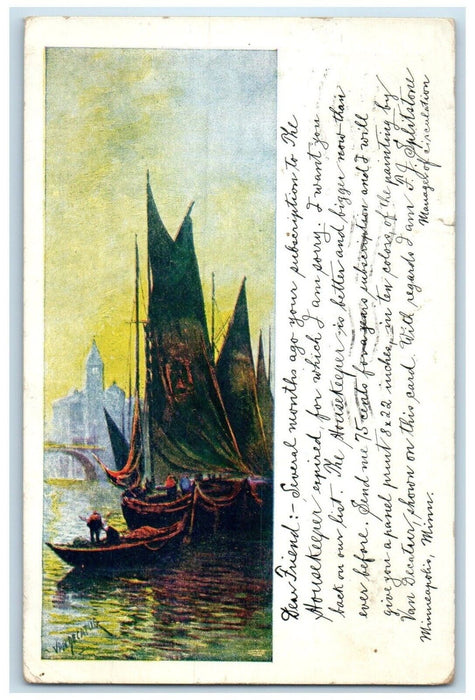 Dear Friend:- Several months ago your subscription to The
Housekeeper expired, for which I am sorry. I want you
back on our list. The Housekeeper is better and bigger now than
ever before. Send me 75 cents for a years subscription and I will
give you a panel print 8 x 22 inches, in ten colors, of the painting by
Van Decatur, shown on this card. With regards I am F. J. Splitstone
Minneapolis, Minn. Manager of Circulation